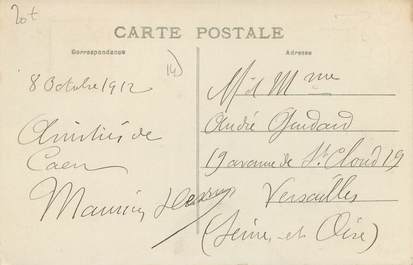 20t
CARTE POSTALE
Correspondance
Adresse
14
8 Octubre 1912
Amitiés de
Caen
Maurice
M et Mme
André
19 avenue de St Cloud 19
Versailles
(Seine-et-Oise)